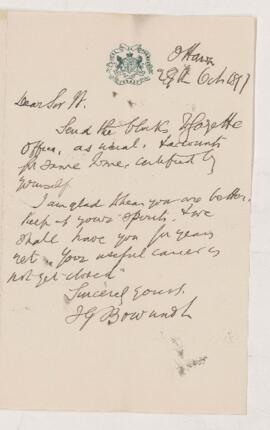 Ottawa
29th Oct 1897
Dear Sir W.
Send the blocks, to Gazette
Office, as usual, & accounts
for same time, certified by
yourself
I am glad to hear you are better.
Keep up your spirits. & we
shall have you for years
yet. Your useful career is
not yet closed
Sincerely yours.
J G Bourinot